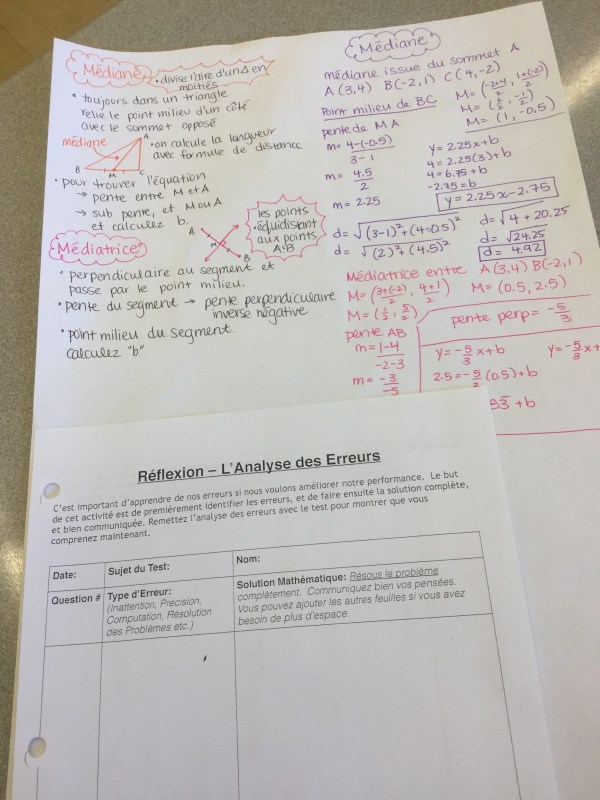 Médiane
• divise l'aire d'un Δ en
moitiés
• toujours dans un triangle
relie le point milieu d'un côté
avec le sommet opposé
médiane
A
B M C
• on calcule la longueur
avec formule de distance
• pour trouver l'équation
→ pente entre M et A
→ sub pente, et M ou A
et calculez b.
A
M
B
les points
• équidistant
aux points
A et B
Médiatrice
• perpendiculaire au segment et
passe par le point milieu.
• pente du segment → pente perpendiculaire
inverse négative
• point milieu du segment.
calculez "b"
Médiane
médiane issue du sommet A
A (3,4) B(-2,1) C(4,-2)
Point milieu de BC
M = (-2+4/2, 1+(-2)/2)
M = (2/2, -1/2)
M = (1, -0,5)
pente de MA
m = 4-(-0.5)/3-1
m = 4.5/2
m = 2.25
y = 2.25x+b
4 = 2.25(3)+b
4 = 6.75 + b
-2.75 = b
y = 2.25x-2.75
d = √(3-1)²+(4-0.5)²
d = √(2)²+(4.5)²
d = √4 + 20.25
d = √24.25
d = 4.92
Médiatrice entre A(3,4) B(-2,1)
M = (3+(-2)/2, 4+1/2)
M = (1/2, 5/2)
M = (0.5, 2.5)
pente AB
m = 1-4/-2-3
m = -3/-5
pente perp = -5/3
y = -5/3 x + b
2.5 = -5/3 (0.5) + b
3 + b
y = -5/3 x +
Réflexion – L'Analyse des Erreurs
C'est important d'apprendre de nos erreurs si nous voulons améliorer notre performance. Le but
de cet activité est de premièrement identifier les erreurs, et de faire ensuite la solution complète,
et bien communiquée. Remettez l'analyse des erreurs avec le test pour montrer que vous
comprenez maintenant.
Date:
Sujet du Test:
Nom:
Question #
Type d'Erreur:
(Inattention, Precision,
Computation, Résolution
des Problèmes etc.)
Solution Mathématique: Résous le problème
complètement. Communiquez bien vos pensées.
Vous pouvez ajouter les autres feuilles si vous avez
besoin de plus d'espace.